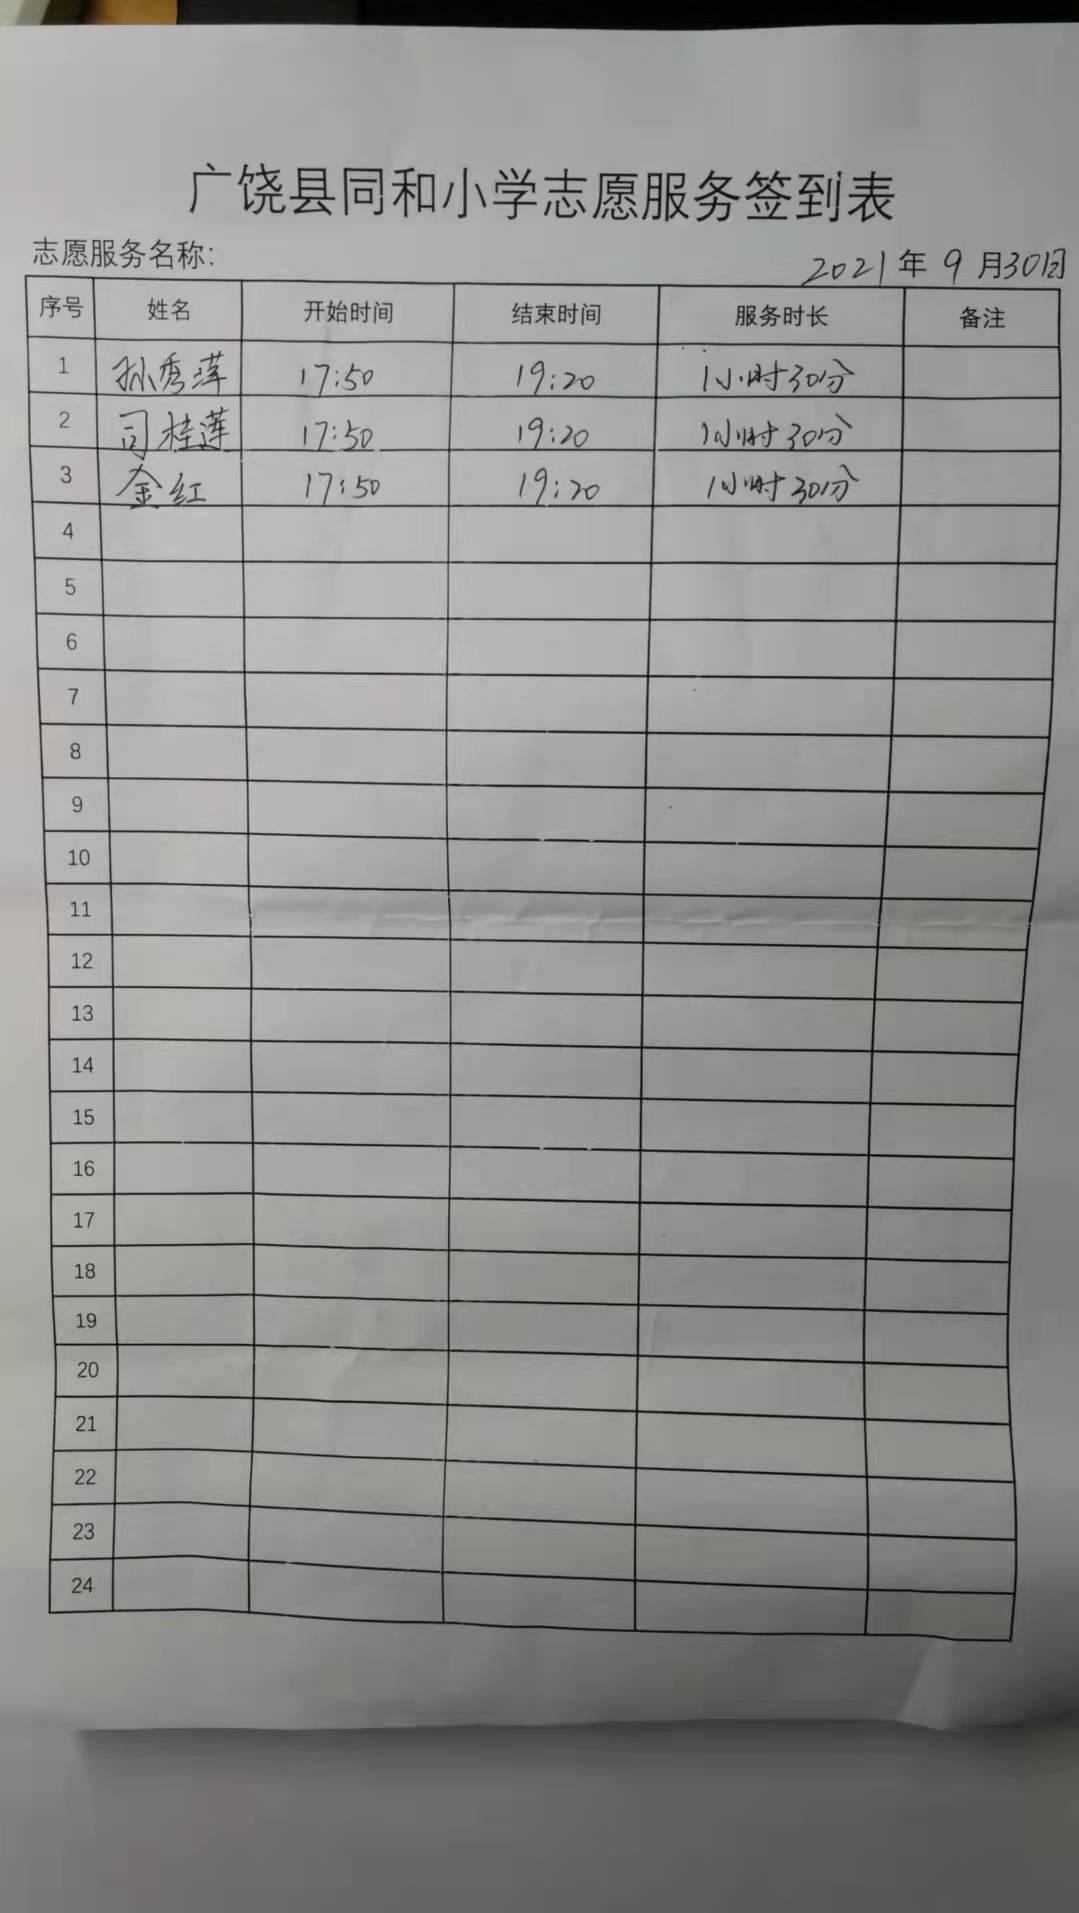 广饶县同和小学志愿服务签到表
志愿服务名称:
2021年9月30日
序号 姓名 开始时间 结束时间 服务时长 备注
1 孙秀莲 17:50 19:20 1小时30分
2 司桂莲 17:50 19:20 1小时30分
3 金红 17:50 19:20 1小时30分
4
5
6
7
8
9
10
11
12
13
14
15
16
17
18
19
20
21
22
23
24